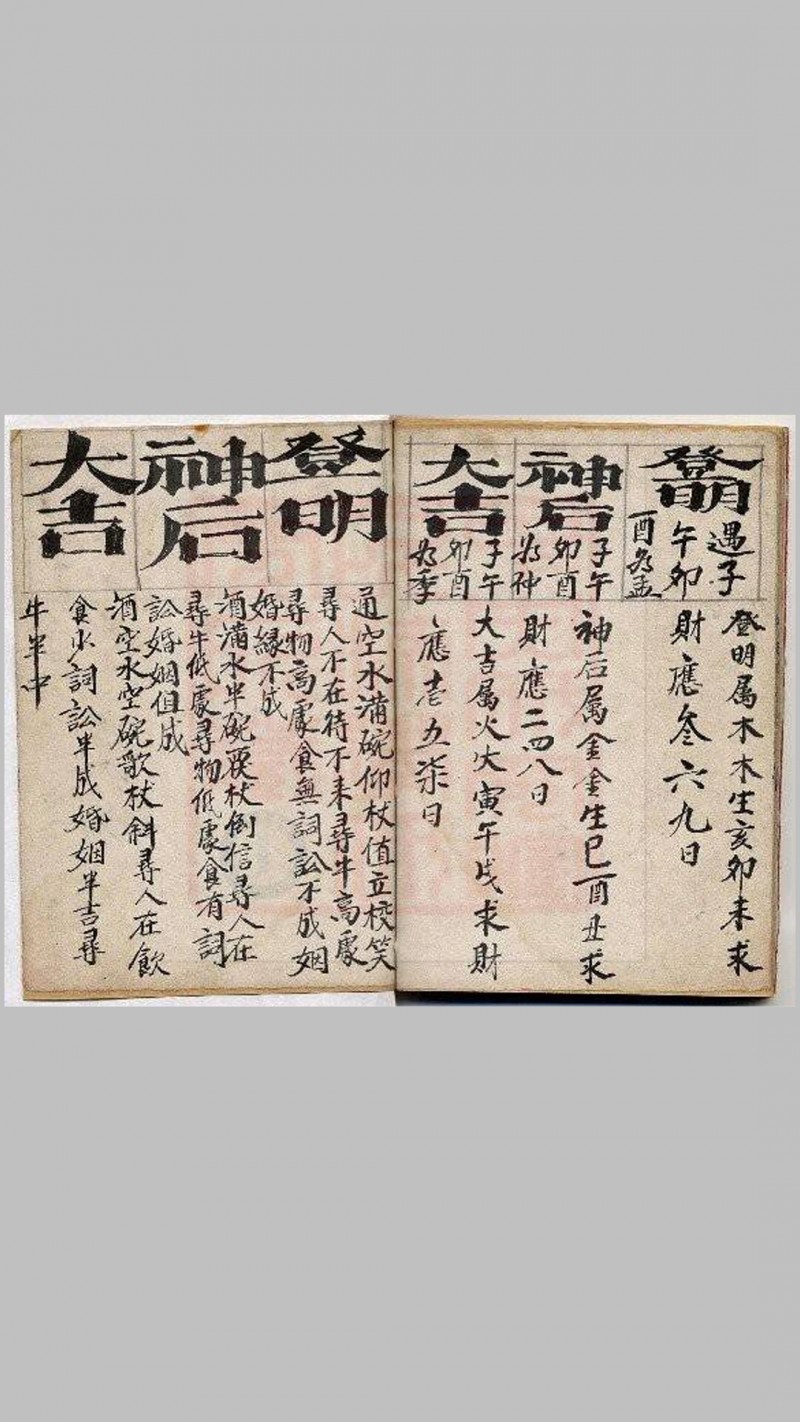 登明
遇子
午卯
酉為孟
登明属木木生亥卯未求
財應叁六九日
神后
子午
卯酉
為仲
神后属金金生巳酉丑求
財應二四八日
大吉
子午
卯酉
為季
大吉属火火寅午戌求財
應壱五柒日
登明
通空水滿碗仰杖值立校笑
尋人不在待不来尋牛高處
尋物高處食無詞訟不成姻
婚縁不成
神后
酒滿水半碗覆杖倒信尋人在
尋牛低處尋物低處食有詞
訟婚姻但成
大吉
酒空水空碗歌杖斜尋人在飲
食水詞訟半成婚姻半吉尋
牛半中